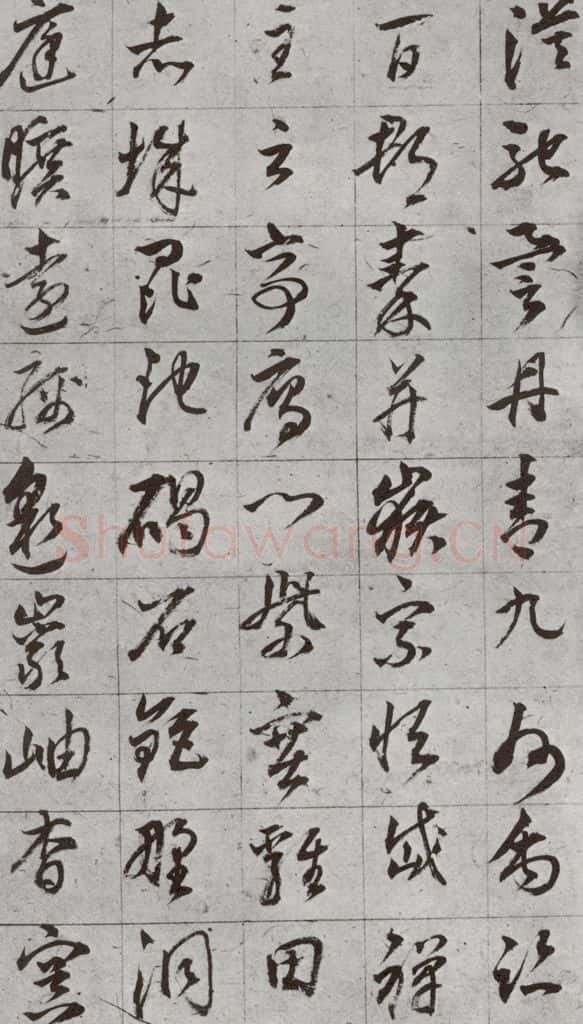 漠馳譽丹青九州禹跡
百郡秦并嶽宗恒岱禪
主云亭雁門紫塞雞田
赤城昆池碣石鉅野洞
庭曠遠綿邈巖岫杳冥
Shufawang.CN